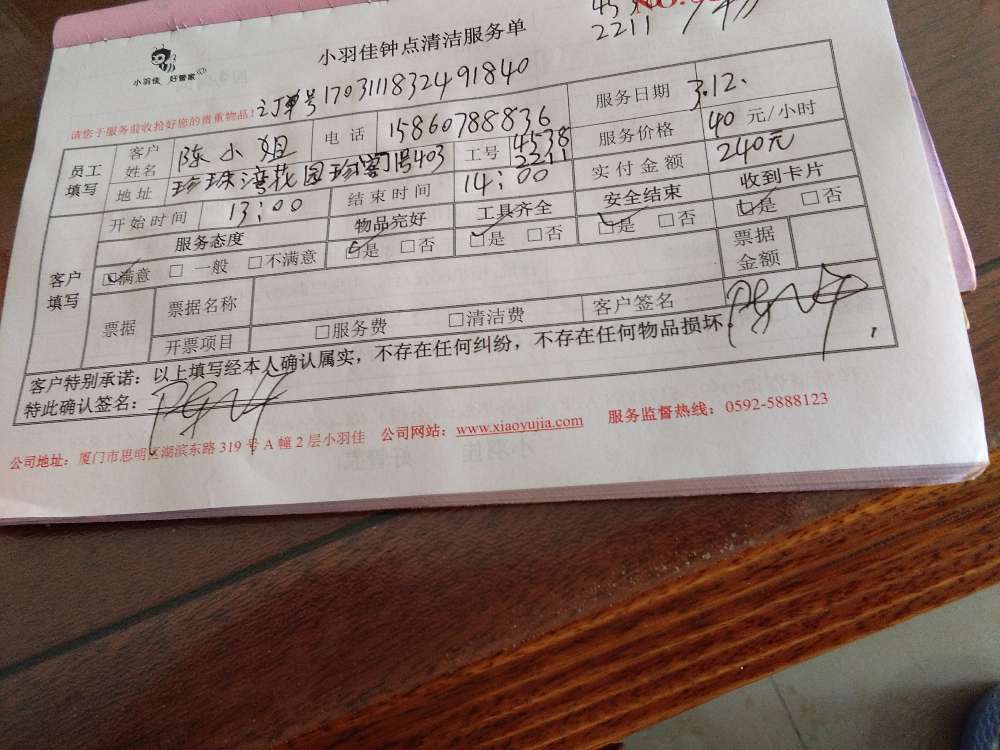 小羽佳 好管家
小羽佳钟点清洁服务单
2211
请您于服务前收拾好您的贵重物品！订单号1703111832491840
服务日期 3.12.
员工填写 客户姓名 陈小姐 电话 15860788836 工号 4538 2211 服务价格 40 元/小时
地址 珍珠湾花园 403 实付金额 240元
开始时间 13:00 结束时间 14:00 安全结束 收到卡片
客户填写 服务态度 物品完好 工具齐全 ☑是 □否 ☑是 □否
☑满意 □一般 □不满意 ☑是 □否 ☑是 □否
票据 票据名称 票据金额
开票项目 □服务费 □清洁费 客户签名
客户特别承诺：以上填写经本人确认属实，不存在任何纠纷，不存在任何物品损坏。
特此确认签名：
公司地址：厦门市思明区湖滨东路 319 号 A 幢 2 层小羽佳 公司网站：www.xiaoyujia.com 服务监督热线：0592-5888123